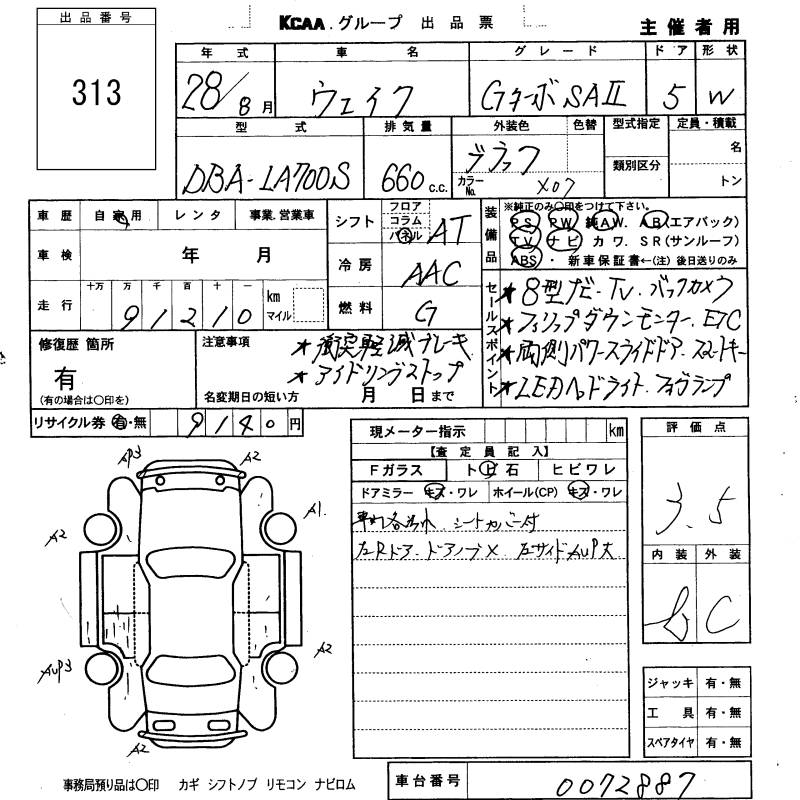 出品番号
313
KCAA.グループ 出品票
主催者用
年式 車名 グレード ドア 形状
28/8月 ウェイク GターボSAⅡ 5 W
型式 排気量 外装色 色替 型式指定 定員・積載
DBA-LA700S 660c.c. ブラック
カラーNo. X07
類別区分
名
トン
車歴 自家用 レンタ 事業.営業車
車検 年 月
走行 十万 万 千 百 十 一
91210 km マイル
シフト フロア コラム パネル AT
冷房 AAC
燃料 G
装備品
※純正のみ〇印をつけて下さい。
PS PW 純AW. AB(エアバック)
TV ナビ カワ. SR(サンルーフ)
ABS・ 新車保証書←(注)後日送りのみ
セールスポイント
★8型ナビ-TV.バックカメラ
★フリップダウンモニター.ETC
★両側パワースライドドア.スマートキー
★LEDヘッドライト.フォグランプ
修復歴 箇所
有
(有の場合は〇印を)
注意事項
★衝突軽減ブレーキ
★アイドリングストップ
名変期日の短い方 月 日まで
リサイクル券 有・無 9140円
現メーター指示 km
【査定員記入】
Fガラス ト ビ 石 ヒビワレ
ドアミラー キズ・ワレ ホイール(CP) キズ・ワレ
シートカバー付
左Rドア.ドアノブX 左サイドAUP大
評価点
3.5
内装 外装
C
ジャッキ 有・無
工具 有・無
スペアタイヤ 有・無
AP3 A2
A2 A1
AUP3 A2
A2
事務局預り品は〇印 カギ シフトノブ リモコン ナビロム
車台番号 0072887